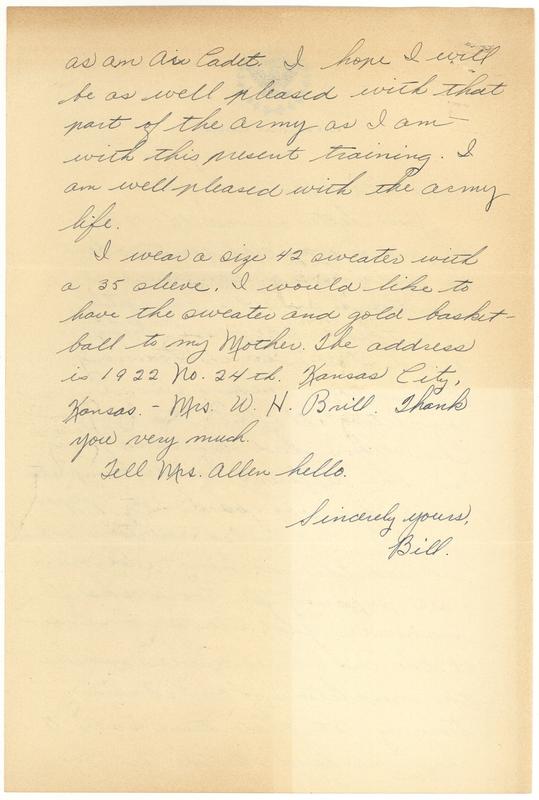 as an Air Cadet. I hope I will
be as well pleased with that
part of the army as I am
with this present training. I
am well pleased with the army
life.
I wear a size 42 sweater with
a 35 sleeve. I would like to
have the sweater and gold basket-
ball to my Mother. The address
is 1922 No. 24th. Kansas City,
Kansas. - Mrs. W. H. Brill. Thank
you very much.
Tell Mrs. Allen hello.
Sincerely yours,
Bill.